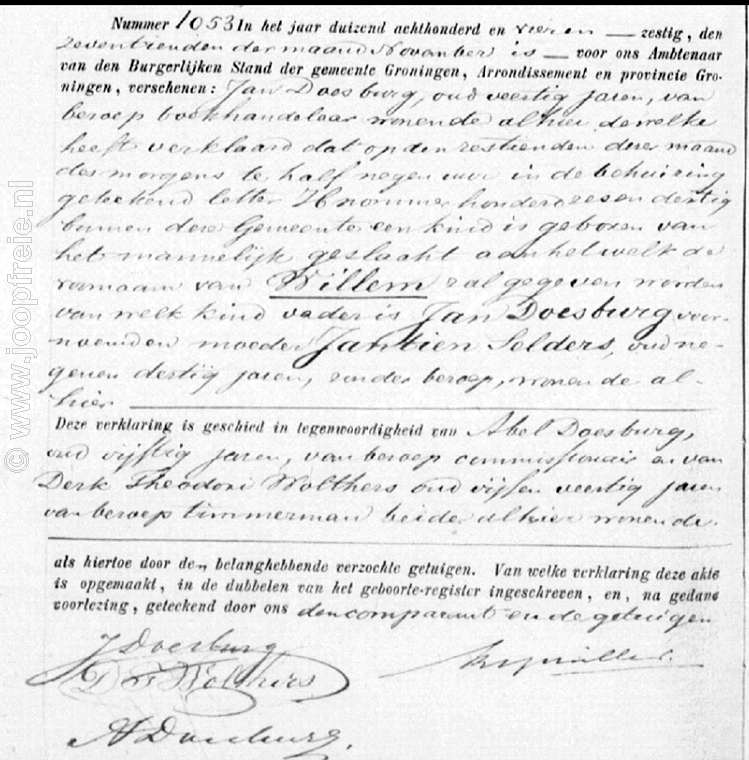 Nummer 1053 In het jaar duizend achthonderd en vier en — zestig, den
zeventienden der maand November is — voor ons Ambtenaar
van den Burgerlijken Stand der gemeente Groningen, Arrondissement en provincie Gro-
ningen, verschenen: Jan Doesburg, oud veertig jaren, van
beroep boekhandelaar wonende alhier dewelke
heeft verklaard dat op den zestienden dezer maand
des morgens te half negen uur in de behuizing
geteekend letter H nommer honderd zes en dertig
binnen deze Gemeente een kind is geboren van
het mannelijk geslacht aan hetwelk de
voornaam van Willem zal gegeven worden
van welk kind vader is Jan Doesburg voor-
noemd en moeder Jantien Selders, oud ne-
gen en dertig jaren, zonder beroep, wonende al-
hier
Deze verklaring is geschied in tegenwoordigheid van Abel Doesburg,
oud vijftig jaren, van beroep commissionair en van
Derk Theodori Wolthers oud vijf en veertig jaren
van beroep timmerman beide alhier wonende.
als hiertoe door de belanghebbende verzochte getuigen. Van welke verklaring deze akte
is opgemaakt, in de dubbelen van het geboorte-register ingeschreven, en, na gedane
voorlezing, geteekend door ons den comparant en de getuigen
J Doesburg
D Th Wolthers
A Doesburg.
© www.joopfreie.nl